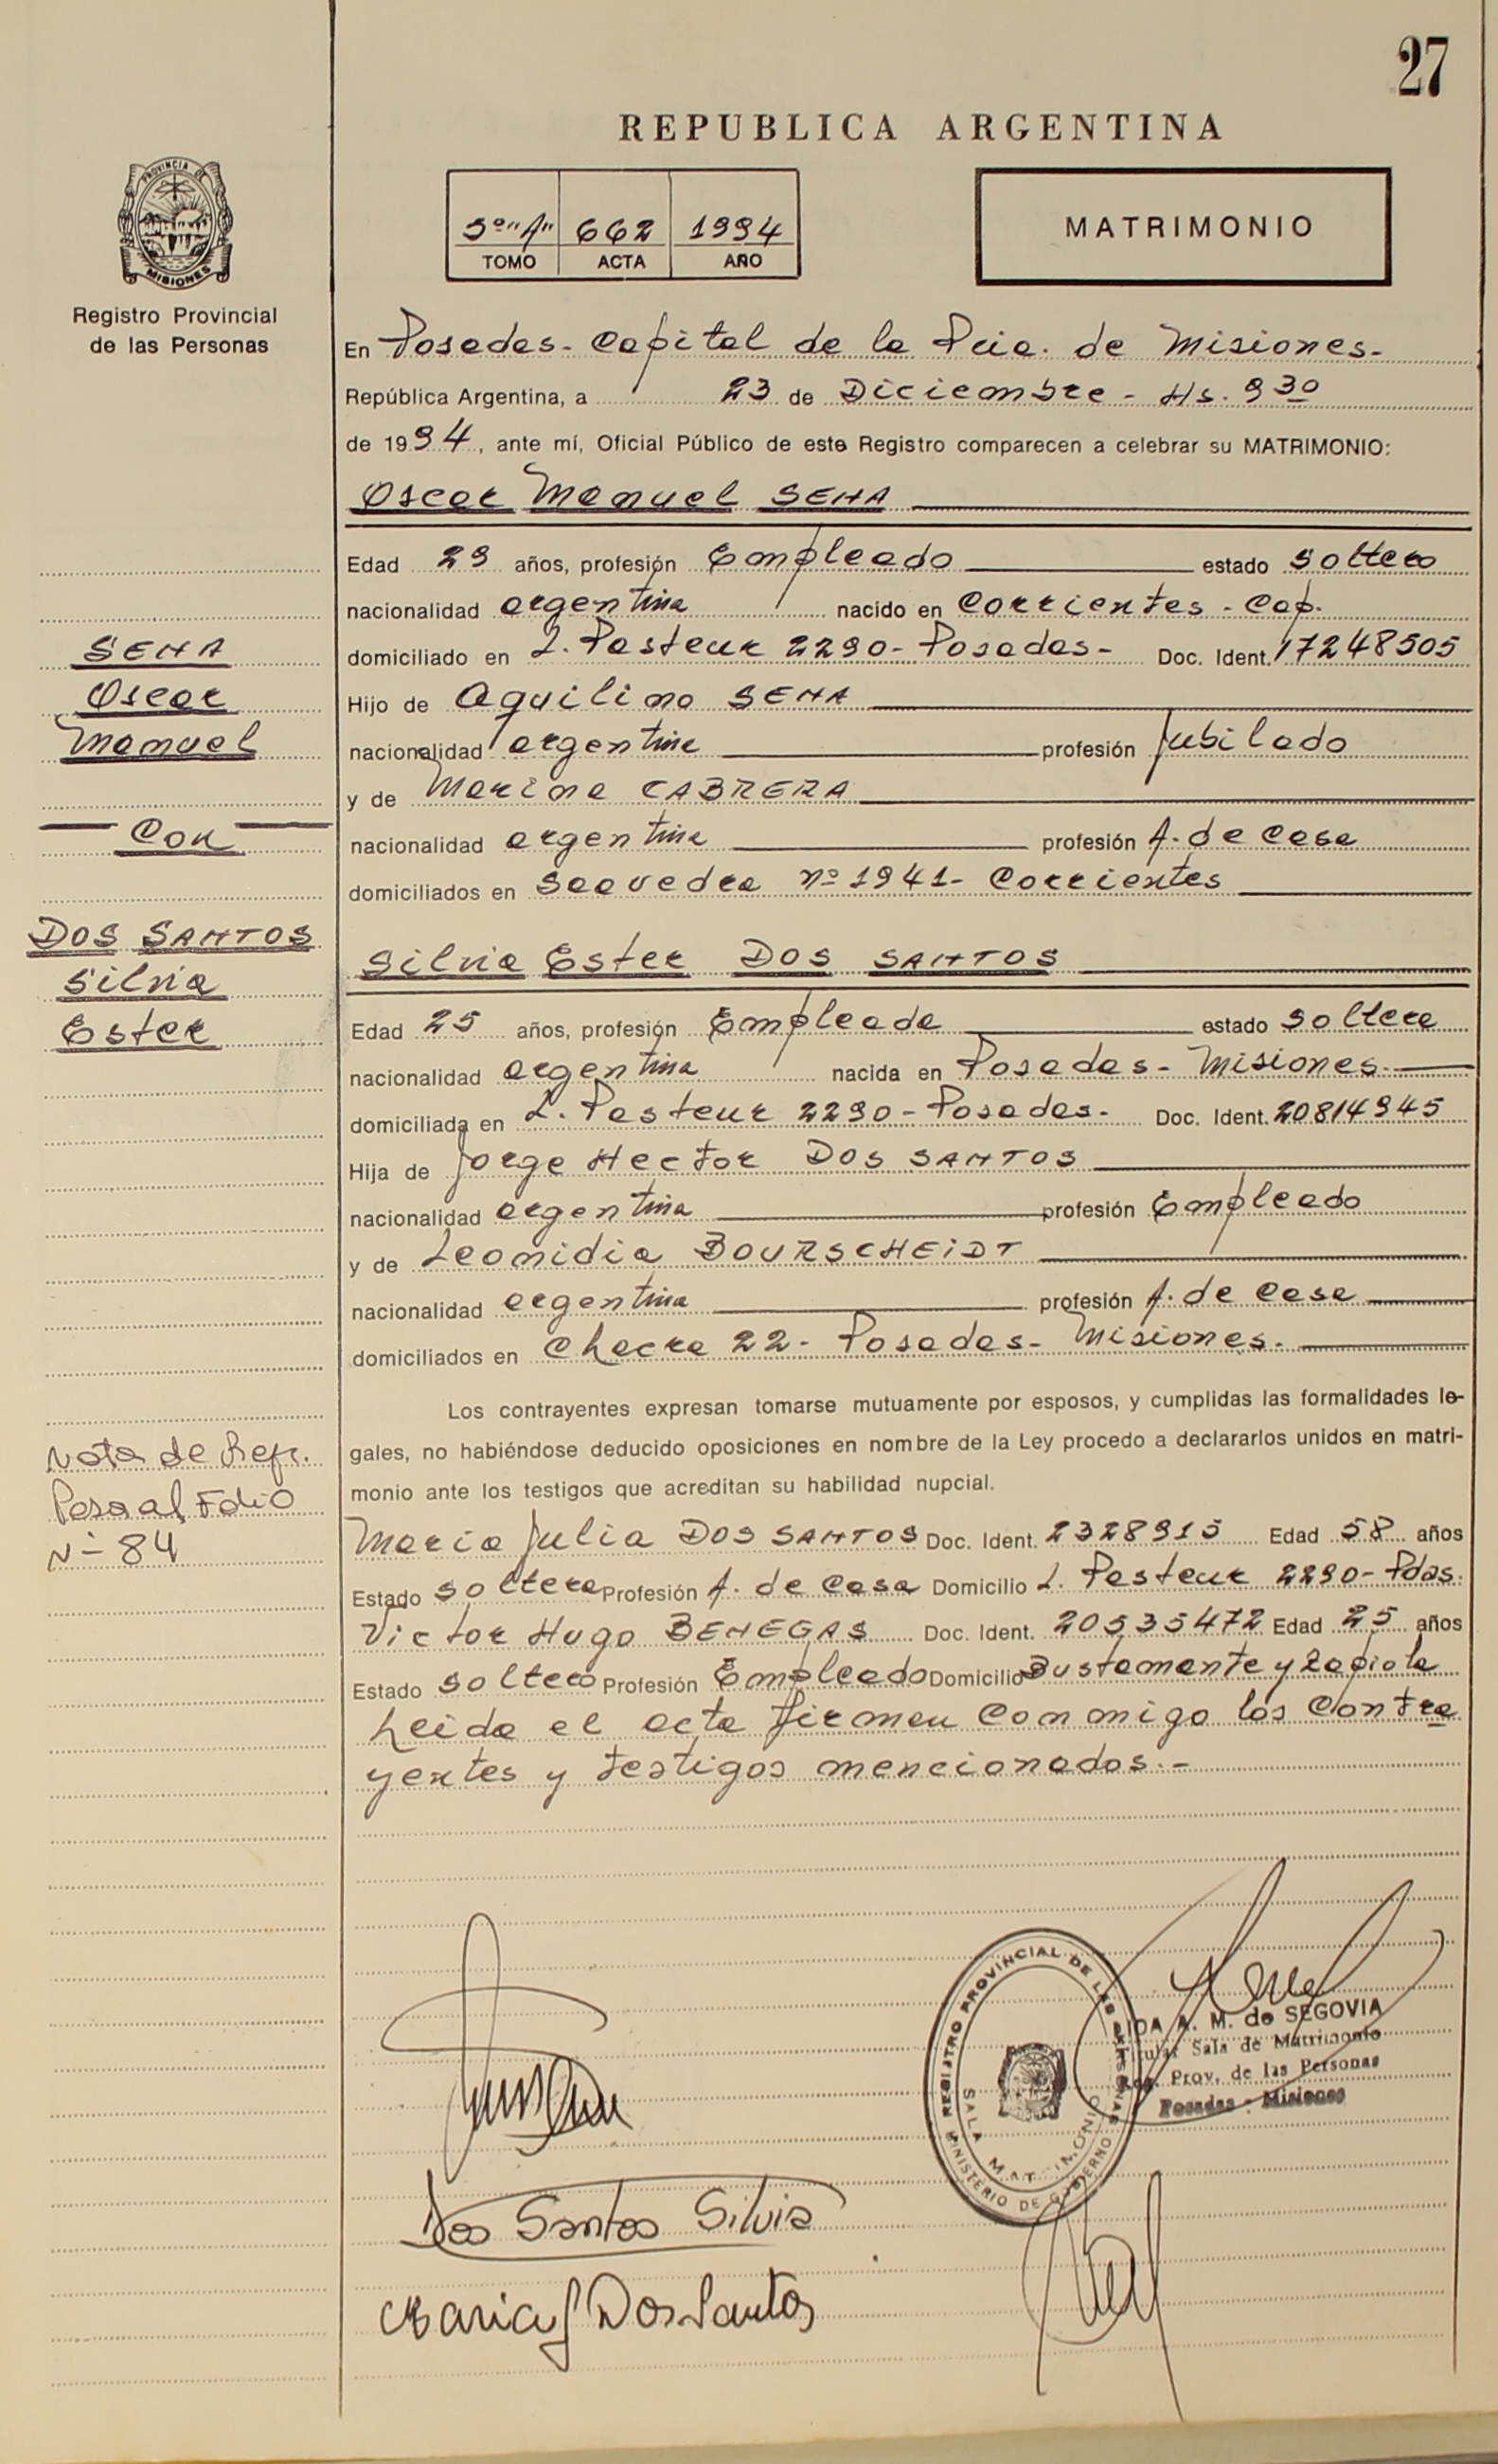 27
REPUBLICA ARGENTINA
PROVINCIA DE
MISIONES
Registro Provincial
de las Personas
5º "A" 662 1994
TOMO ACTA AÑO
MATRIMONIO
En Posadas - Capital de la Pcia. de Misiones.-
República Argentina, a 23 de Diciembre - Hs. 9 30
de 1994, ante mí, Oficial Público de este Registro comparecen a celebrar su MATRIMONIO:
Oscar Manuel SENA
Edad 29 años, profesión Empleado estado soltero
nacionalidad argentina nacido en Corrientes - Cap.
domiciliado en L. Pasteur 2290 - Posadas - Doc. Ident. 17248505
Hijo de Aquilino SENA
nacionalidad argentina profesión Jubilado
y de Marina CABRERA
nacionalidad argentina profesión A. de Casa
domiciliados en Saavedra nº 1941 - Corrientes
Silvia Ester DOS SANTOS
Edad 25 años, profesión Empleada estado soltera
nacionalidad argentina nacida en Posadas - Misiones.-
domiciliada en L. Pasteur 2290 - Posadas - Doc. Ident. 20814945
Hija de Jorge Hector DOS SANTOS
nacionalidad argentina profesión Empleado
y de Leonidia BOURSCHEIDT
nacionalidad argentina profesión A. de Casa
domiciliados en Chacra 22 - Posadas - Misiones.-
Los contrayentes expresan tomarse mutuamente por esposos, y cumplidas las formalidades le-
gales, no habiéndose deducido oposiciones en nombre de la Ley procedo a declararlos unidos en matri-
monio ante los testigos que acreditan su habilidad nupcial.
Maria Julia DOS SANTOS Doc. Ident. 2328915 Edad 58 años
Estado soltera Profesión A. de Casa Domicilio L. Pasteur 2290 - Pdas.
Victor Hugo BENEGAS Doc. Ident. 20535472 Edad 25 años
Estado soltero Profesión Empleado Domicilio Bustamante y Zapiola
Leida el acta firman conmigo los Contra
yentes y testigos mencionados.-
SENA
Oscar
Manuel
Con
DOS SANTOS
Silvia
Ester
Nota de Refr.
Pasa al Folio
Nº 84
REGISTRO PROVINCIAL DE LAS PERSONAS
SALA MATRIMONIO
MINISTERIO DE GOBIERNO
IDA A. M. de SEGOVIA
Titular Sala de Matrimonio
Reg. Prov. de las Personas
Posadas - Misiones
Dos Santos Silvia
Maria J Dos Santos